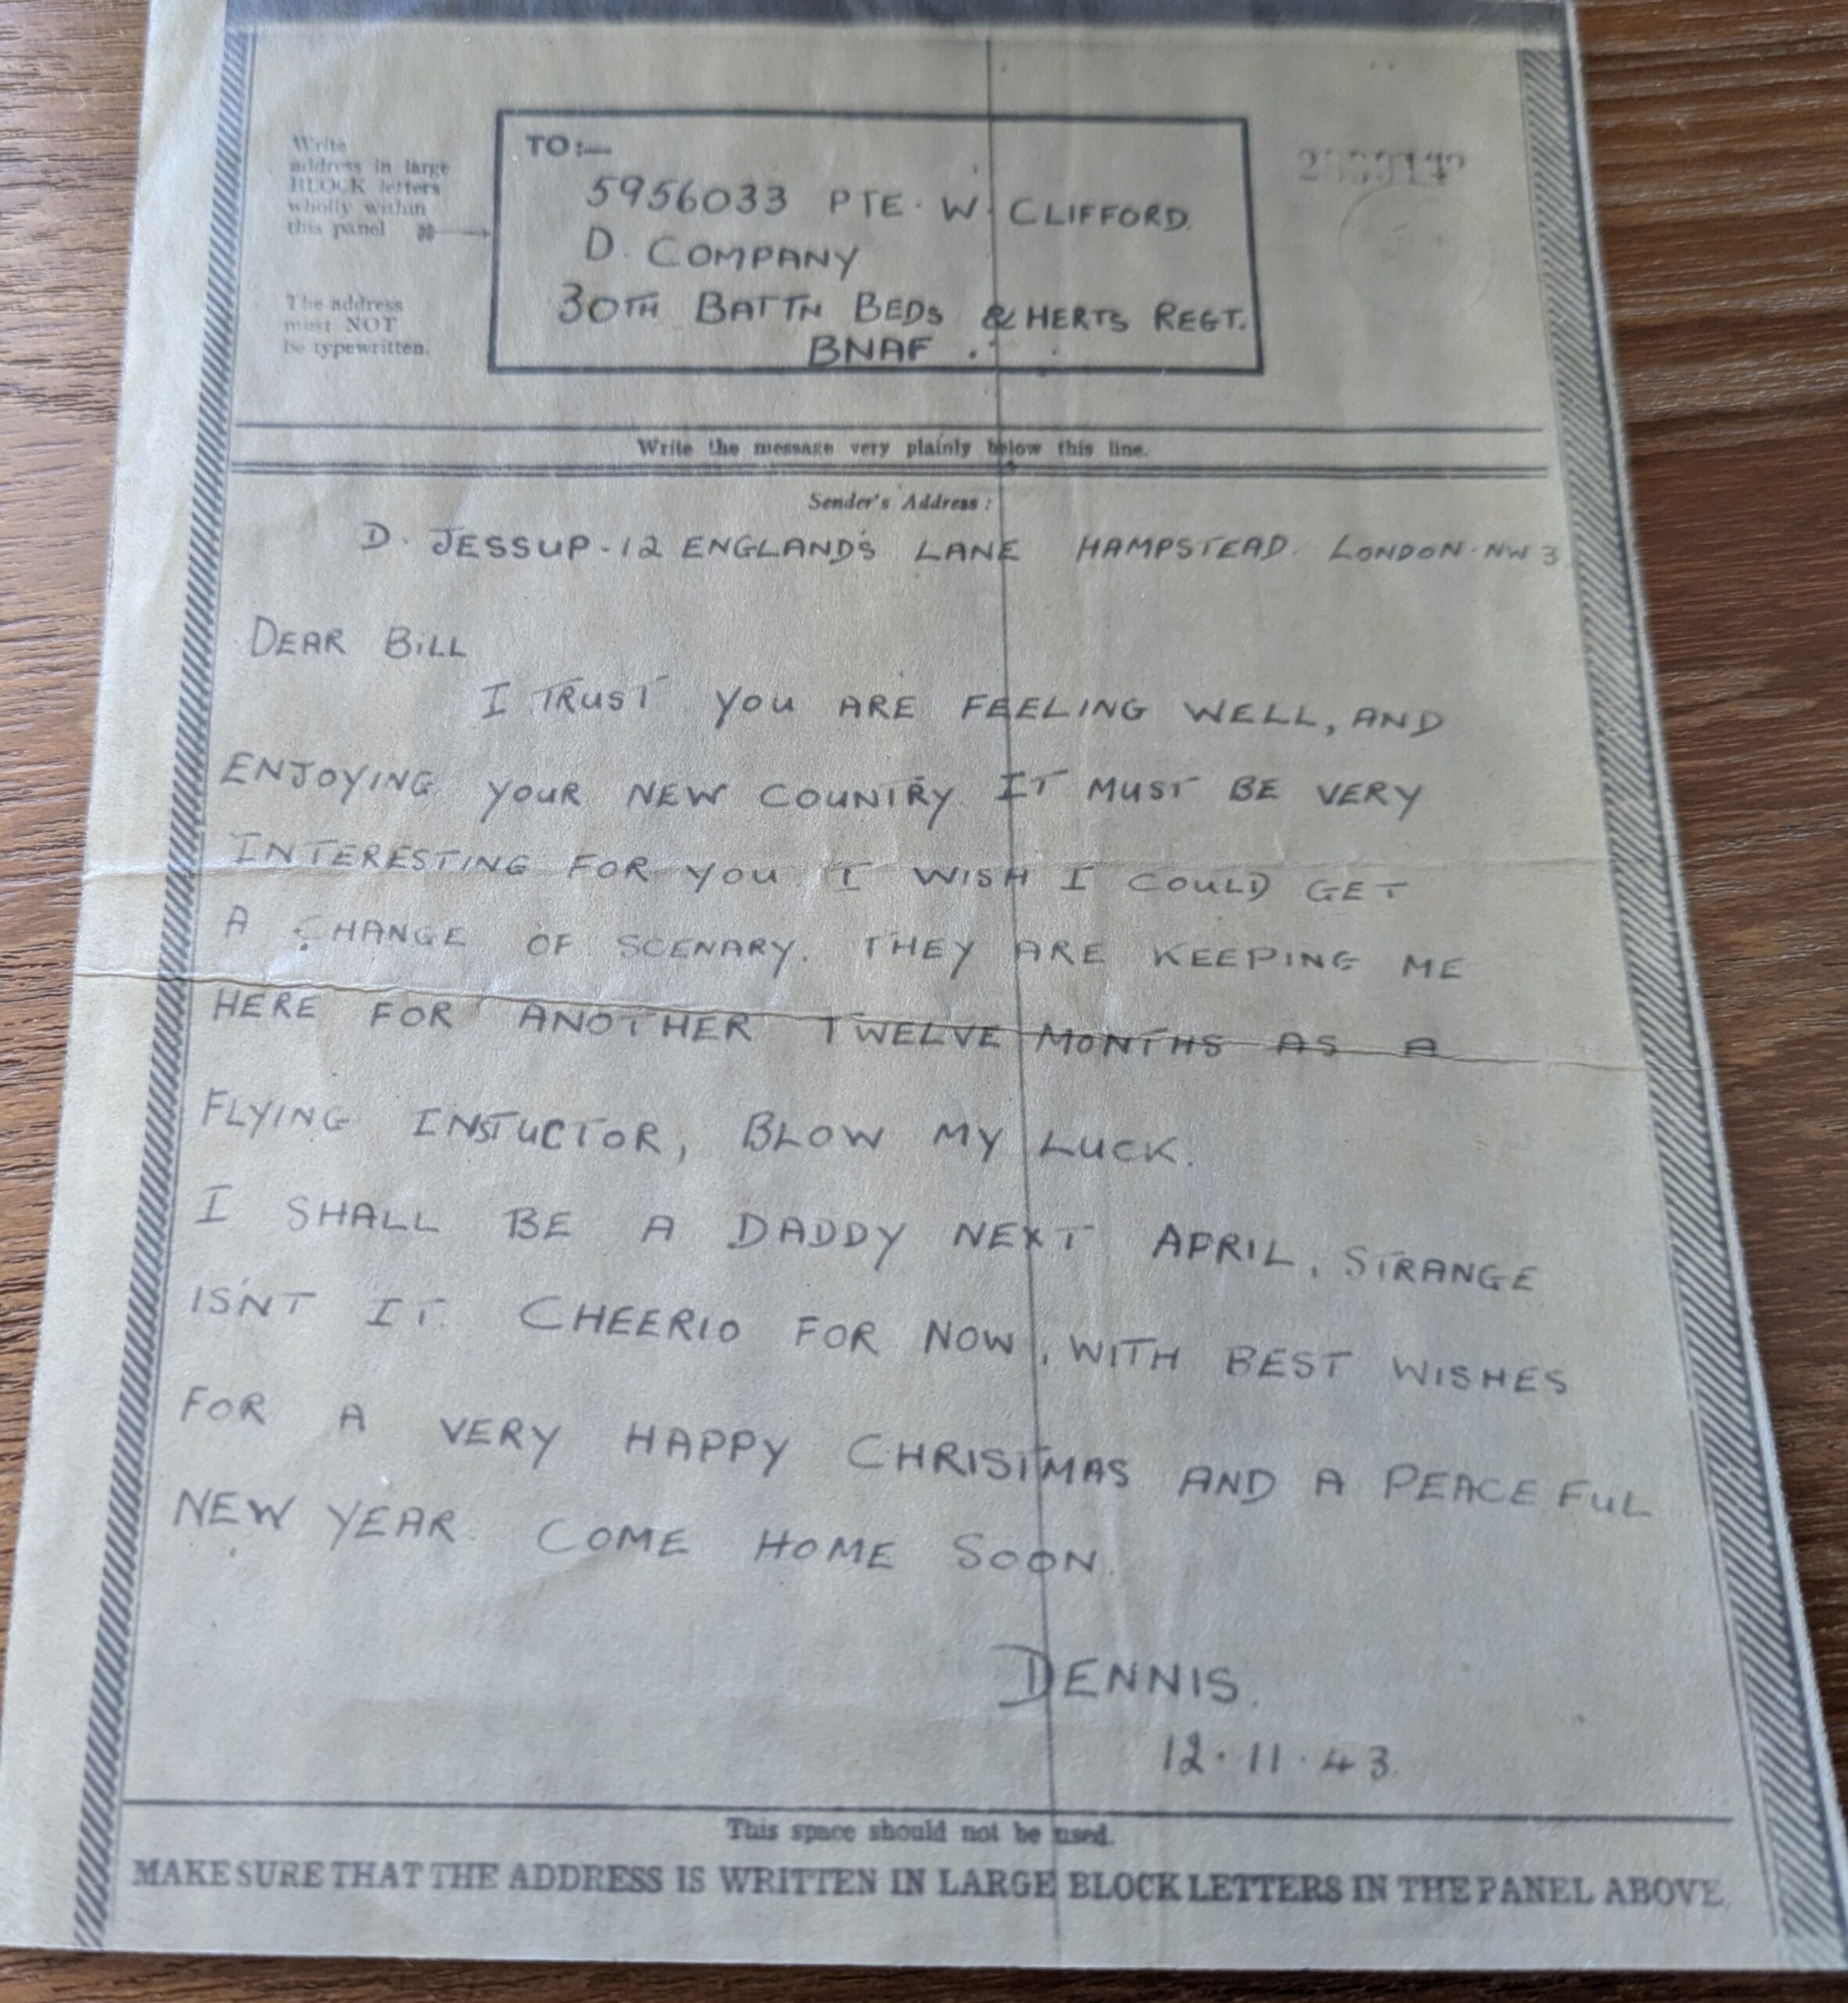 Write
address in large
BLOCK letters
wholly within
this panel
The address
must NOT
be typewritten.
TO:—
5956033 PTE. W. CLIFFORD.
D. COMPANY
30TH BATTN BEDS & HERTS REGT.
BNAF.
Write the message very plainly below this line.
Sender's Address:
D. JESSUP - 12 ENGLAND'S LANE HAMPSTEAD. LONDON. NW 3
DEAR BILL
I TRUST YOU ARE FEELING WELL, AND
ENJOYING YOUR NEW COUNTRY. IT MUST BE VERY
INTERESTING FOR YOU. I WISH I COULD GET
A CHANGE OF SCENARY. THEY ARE KEEPING ME
HERE FOR ANOTHER TWELVE MONTHS AS A
FLYING INSTUCTOR, BLOW MY LUCK.
I SHALL BE A DADDY NEXT APRIL, STRANGE
ISN'T IT. CHEERIO FOR NOW, WITH BEST WISHES
FOR A VERY HAPPY CHRISTMAS AND A PEACEFUL
NEW YEAR. COME HOME SOON.
DENNIS.
12.11.43.
This space should not be used.
MAKE SURE THAT THE ADDRESS IS WRITTEN IN LARGE BLOCK LETTERS IN THE PANEL ABOVE.